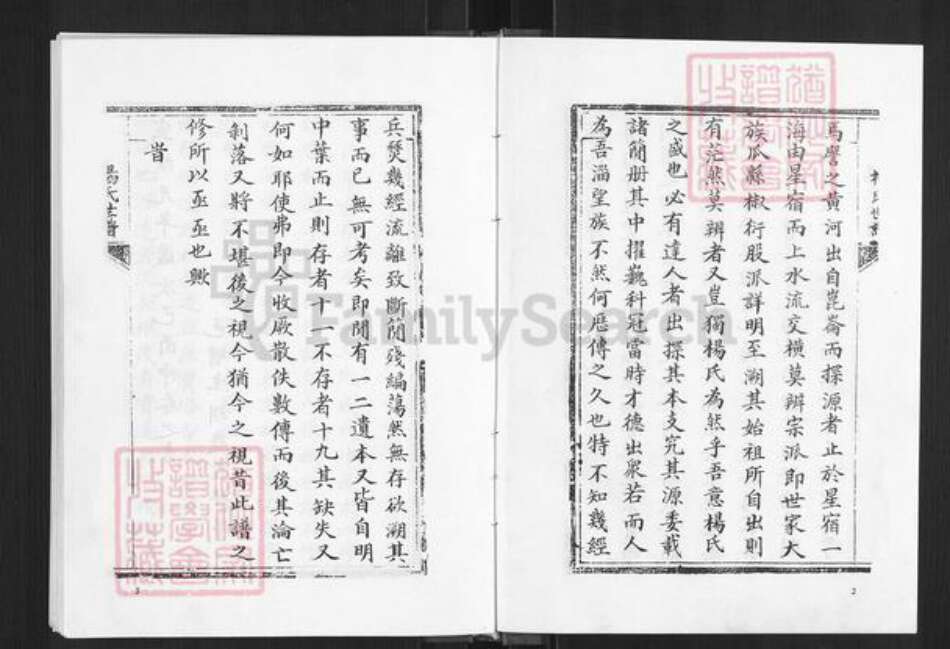 焉譬之黃河出自崑崙而探源者止於星宿一
海由星宿而上水流交橫莫辨宗派即世家大
族瓜緜椒衍股派詳明至溯其始祖所自出則
有茫然莫辨者又豈獨楊氏為然乎吾意楊氏
之盛也必有達人者出探其本支究其源委載
諸簡册其中擢巍科冠當時才德出眾若而人
為吾淄望族不然何歷傳之久也特不知幾經
2
兵燹幾經流離致斷簡殘編蕩然無存欲溯其
事而已無可考矣即間有一二遺本又皆自明
中葉而止則存者十一不存者十九其缺失又
何如耶使弗即今收厥散佚數傳而後其淪亡
剝落又將不堪後之視今猶今之視昔此譜之
修所以亟亟也歟
旹
楊氏世譜
3
FamilySearch